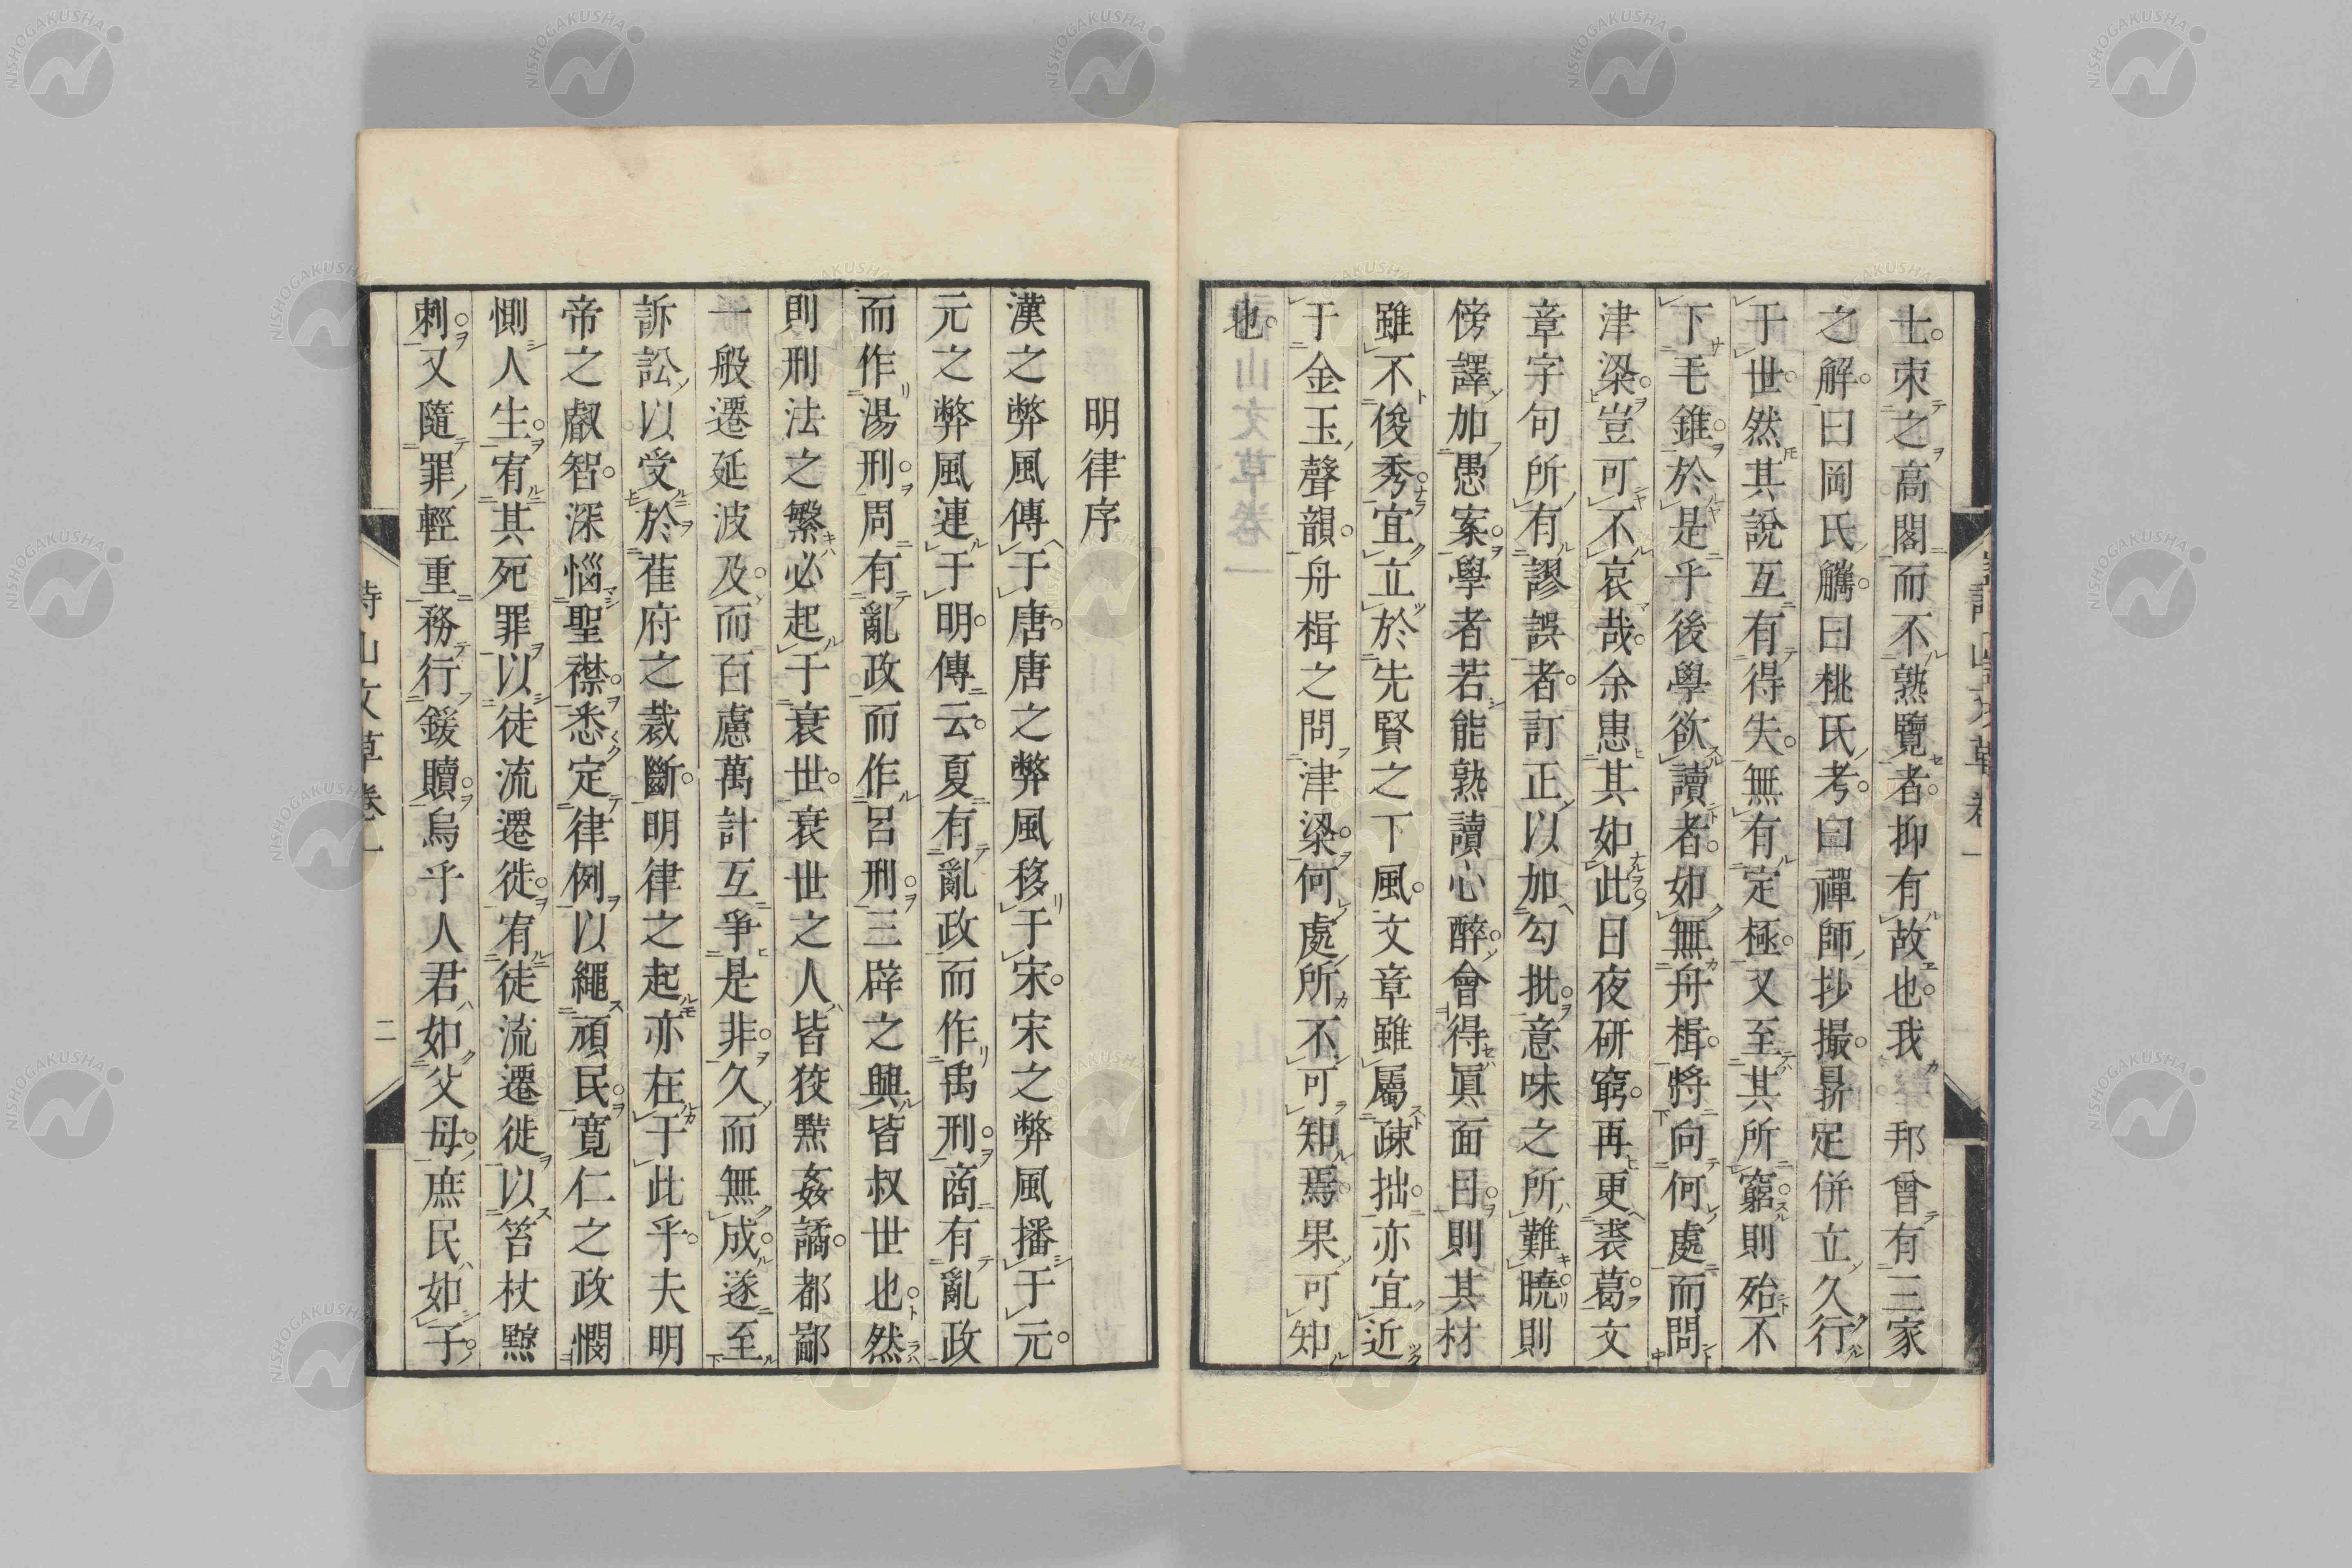 士束之高閣而不熟覽者抑有故也我 邦曾有三家
之解曰岡氏觿曰桃氏考曰禪師抄撮鼎足併立久行
于世然其說互有得失無有定極又至其所窮則殆不
下毛錐於是乎後學欲讀者如無舟楫將向何處而問
津梁豈可不哀哉余患其如此日夜研窮再更裘葛文
章字句所有謬誤者訂正以加勾批意味之所難曉則
傍譯加愚案學者若能熟讀心醉會得眞面目則其材
雖不俊秀宜立於先賢之下風文章雖屬疎拙亦宜近
于金玉聲韻舟楫之問津梁何處所不可知焉果可知
也
明律序
漢之弊風傳于唐唐之弊風移于宋宋之弊風播于元
元之弊風連于明傳云夏有亂政而作禹刑商有亂政
而作湯刑周有亂政而作呂刑三辟之興皆叔世也然
則刑法之繁必起于衰世衰世之人皆狡黠姦譎都鄙
一般遷延波及而百慮萬計互爭是非久而無成遂至
訴訟以受於萑府之裁斷明律之起亦在于此乎夫明
帝之叡智深惱聖襟悉定律例以繩頑民寬仁之政憫
惻人生宥其死罪以徒流遷徙宥徒流遷徙以笞杖黥
刺又隨罪輕重務行鍰贖烏乎人君如父母庶民如子
詩山文草卷一
二
NISHOGAKUSHA